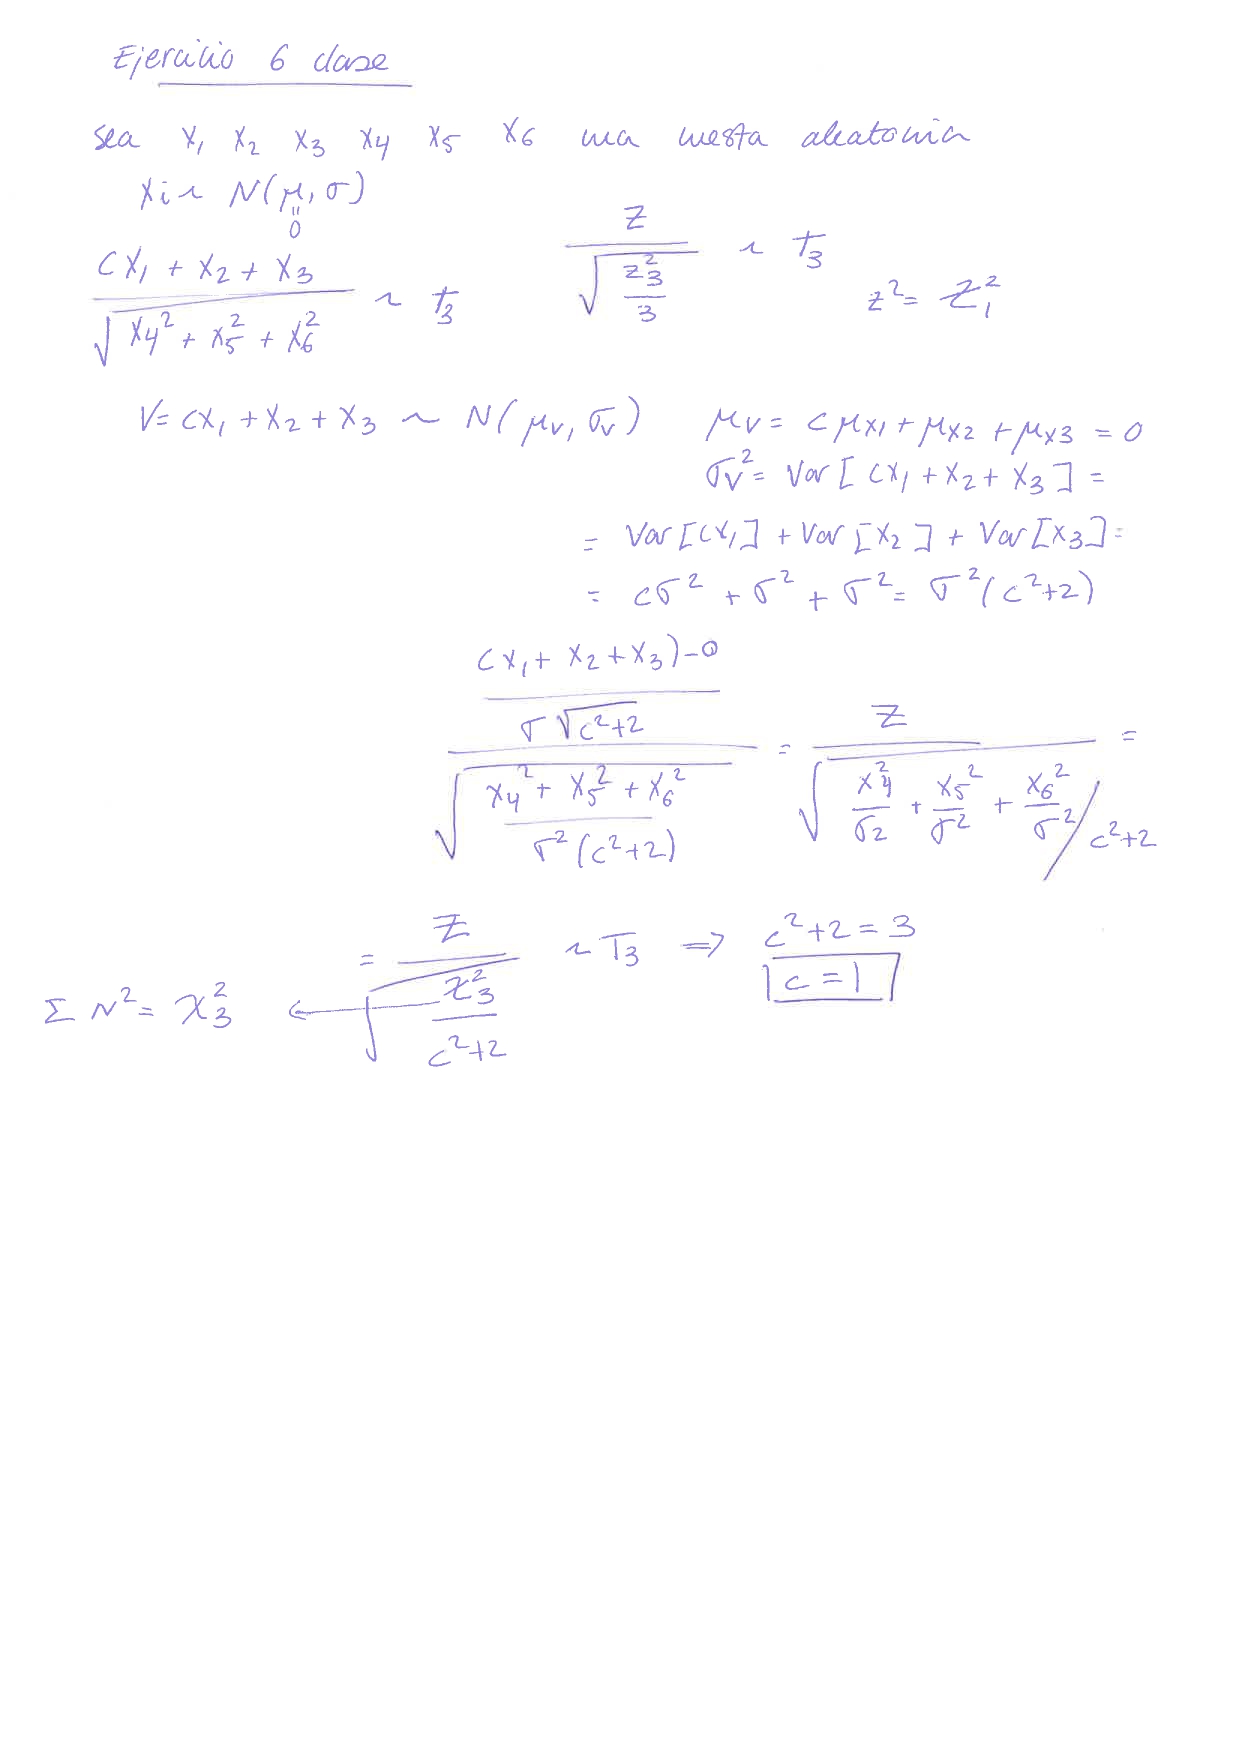 Ejercicio 6 clase
sea X₁ X₂ X₃ X₄ X₅ X₆ una muestra aleatoria
Xi ~ N(μ, σ)
"
0
(CX₁ + X₂ + X₃) / √(X₄² + X₅² + X₆²) ~ t₃
Z / √(χ₃² / 3) ~ T₃
Z² = χ₁²
V = CX₁ + X₂ + X₃ ~ N(μv, σv)
μv = Cμx₁ + μx2 + μx3 = 0
σv² = Var[CX₁ + X₂ + X₃] =
= Var[CX₁] + Var[X₂] + Var[X₃] =
= Cσ² + σ² + σ² = σ²(C²+2)
((CX₁ + X₂ + X₃) - 0 / σ√(C²+2)) / √((X₄² + X₅² + X₆²) / σ²(C²+2)) = Z / √(X₄²/σ² + X₅²/σ² + X₆²/σ² / C²+2) =
= Z / √(χ₃² / C²+2) ~ T₃ ⇒ C²+2 = 3
C = 1
Σ N² = χ₃² ←